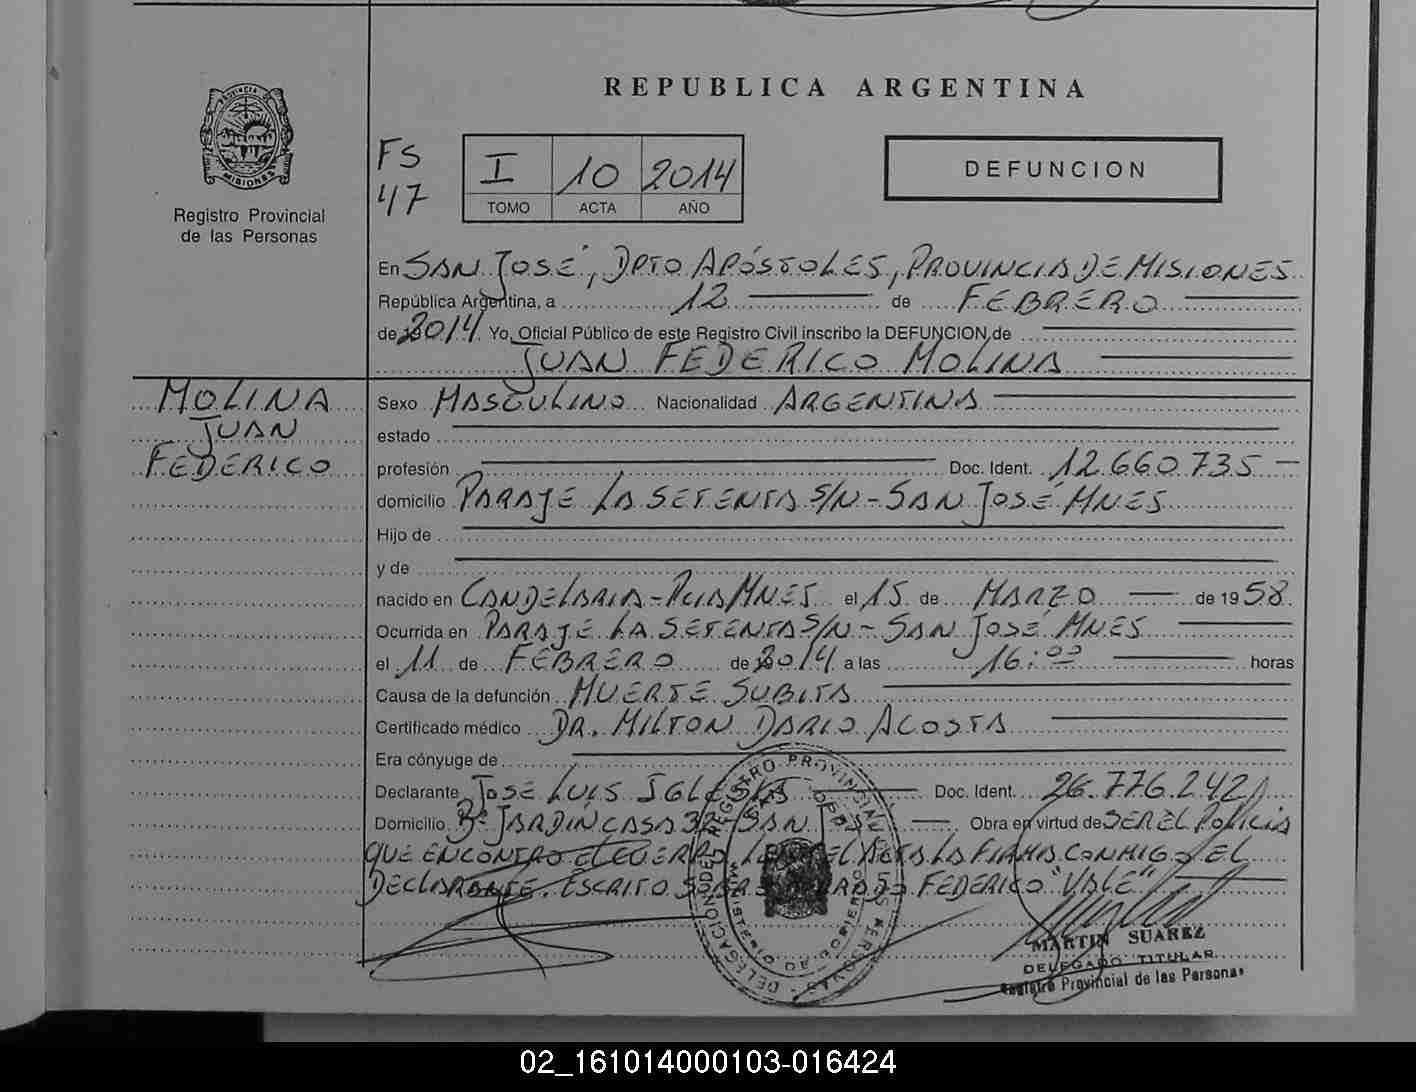 REPUBLICA ARGENTINA
PROVINCIA DE MISIONES
Registro Provincial
de las Personas
FS
47
I 10 2014
TOMO ACTA AÑO
DEFUNCION
En SAN JOSÉ, DPTO APÓSTOLES, PROVINCIA DE MISIONES
República Argentina, a 12 de FEBRERO
de 2014 Yo, Oficial Público de este Registro Civil inscribo la DEFUNCION de
JUAN FEDERICO MOLINA
MOLINA
JUAN
FEDERICO
Sexo MASCULINO Nacionalidad ARGENTINA
estado
profesión Doc. Ident. 12.660.735
domicilio PARAJE LA SETENTA S/N - SAN JOSÉ MNES
Hijo de
y de
nacido en CANDELARIA - PCIA MNES el 15 de MARZO de 1958
Ocurrida en PARAJE LA SETENTA S/N - SAN JOSÉ MNES
el 11 de FEBRERO de 2014 a las 16:00 horas
Causa de la defunción MUERTE SUBITA
Certificado médico DR. MILTON DARIO ACOSTA
Era cónyuge de
Declarante JOSE LUIS IGLESIAS Doc. Ident. 26.776.242
Domicilio Bº JARDIN CASA 32 - SAN JOSÉ Obra en virtud de SER EL POLICIA
QUE ENCONTRO EL CUERPO LEIDA EL ACTA LA FIRMA CONMIGO EL
DECLARANTE. ESCRITO SOBRE RASPADO FEDERICO "VALE"
DELEGACION DEL REGISTRO PROVINCIAL DE LAS PERSONAS
MINISTERIO DE GOBIERNO
MARTIN SUAREZ
DELEGADO TITULAR
Registro Provincial de las Personas
02_161014000103-016424